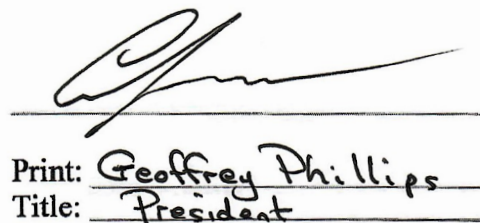 Print: Geoffrey Phillips
Title: President